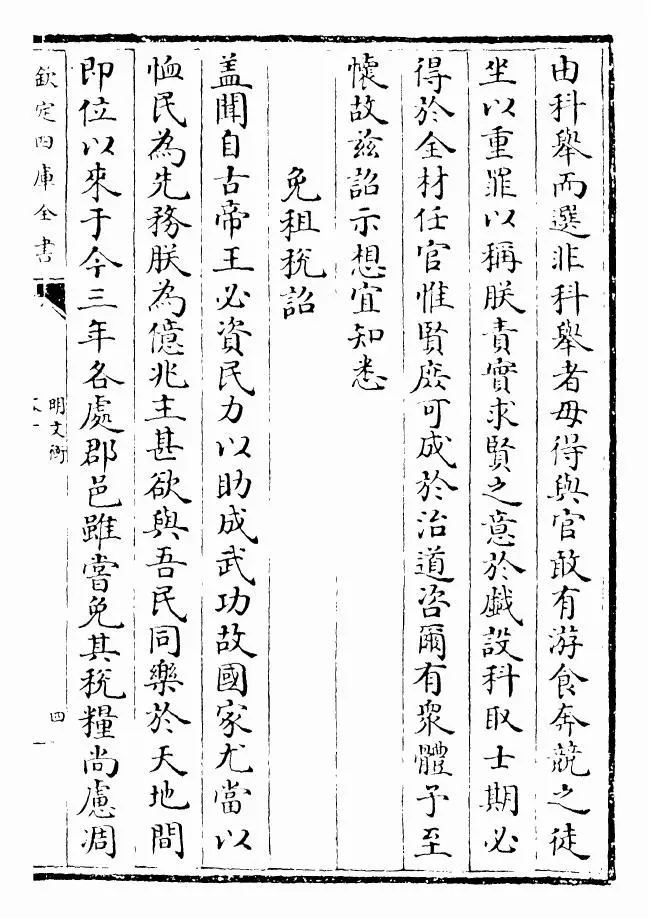 由科舉而選非科舉者毋得與官敢有游食奔競之徒
坐以重罪以稱朕責實求賢之意於戲設科取士期必
得於全材任官惟賢庶可成於治道咨爾有衆體予至
懷故兹詔示想宜知悉
免租稅詔
盖聞自古帝王必資民力以助成武功故國家尤當以
恤民為先務朕為億兆主甚欲與吾民同樂於天地間
即位以來于今三年各處郡邑雖嘗免其稅糧尚慮凋
欽定四庫全書
明文衡
四